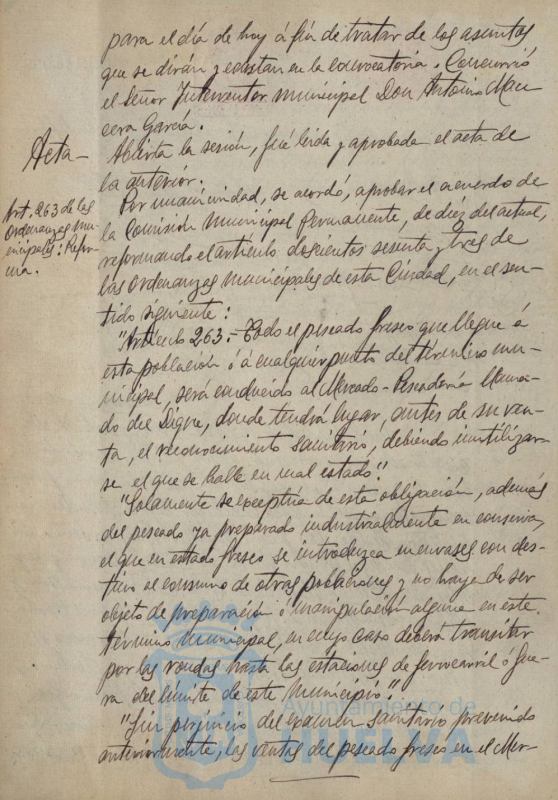 para el día de hoy á fin de tratar de los asuntos
que se dirán y constan en la convocatoria. Concurrió
el Señor Interventor Municipal Don Antonio Man
cera García.
Acta-
Abierta la sesión, fué leída y aprobada el acta de
la anterior.
Art. 263 de las
Ordenanzas Mu-
nicipales: Refor-
ma.
Por unanimidad, se acordó, aprobar el acuerdo de
la Comisión Municipal Permanente, de diez del actual,
reformando el artículo doscientos sesenta y tres de
las Ordenanzas Municipales de esta Ciudad, en el sen-
tido siguiente:
"Artículo 263.- Todo el pescado fresco que llegue á
esta población ó á cualquier punto del término mu-
nicipal, será conducido al Mercado-Pescadería llama-
do del Dique, donde tendrá lugar, antes de su ven-
ta, el reconocimiento sanitario, debiendo inutilizar-
se el que se halle en mal estado."
"Solamente se exceptúa de esta obligación, además
del pescado ya preparado industrialmente en conserva,
el que en estado fresco se introduzca en envases con des-
tino al consumo de otras poblaciones y no haya de ser
objeto de preparación ó manipulación alguna en este
término Municipal, en cuyo caso deberá transitar
por las rondas hasta las estaciones de ferrocarril ó fue-
ra del límite de este Municipio."
"Sin perjuicio del examen sanitario prevenido
anteriormente, las ventas del pescado fresco en el Mer-
Ayuntamiento de
HUELVA